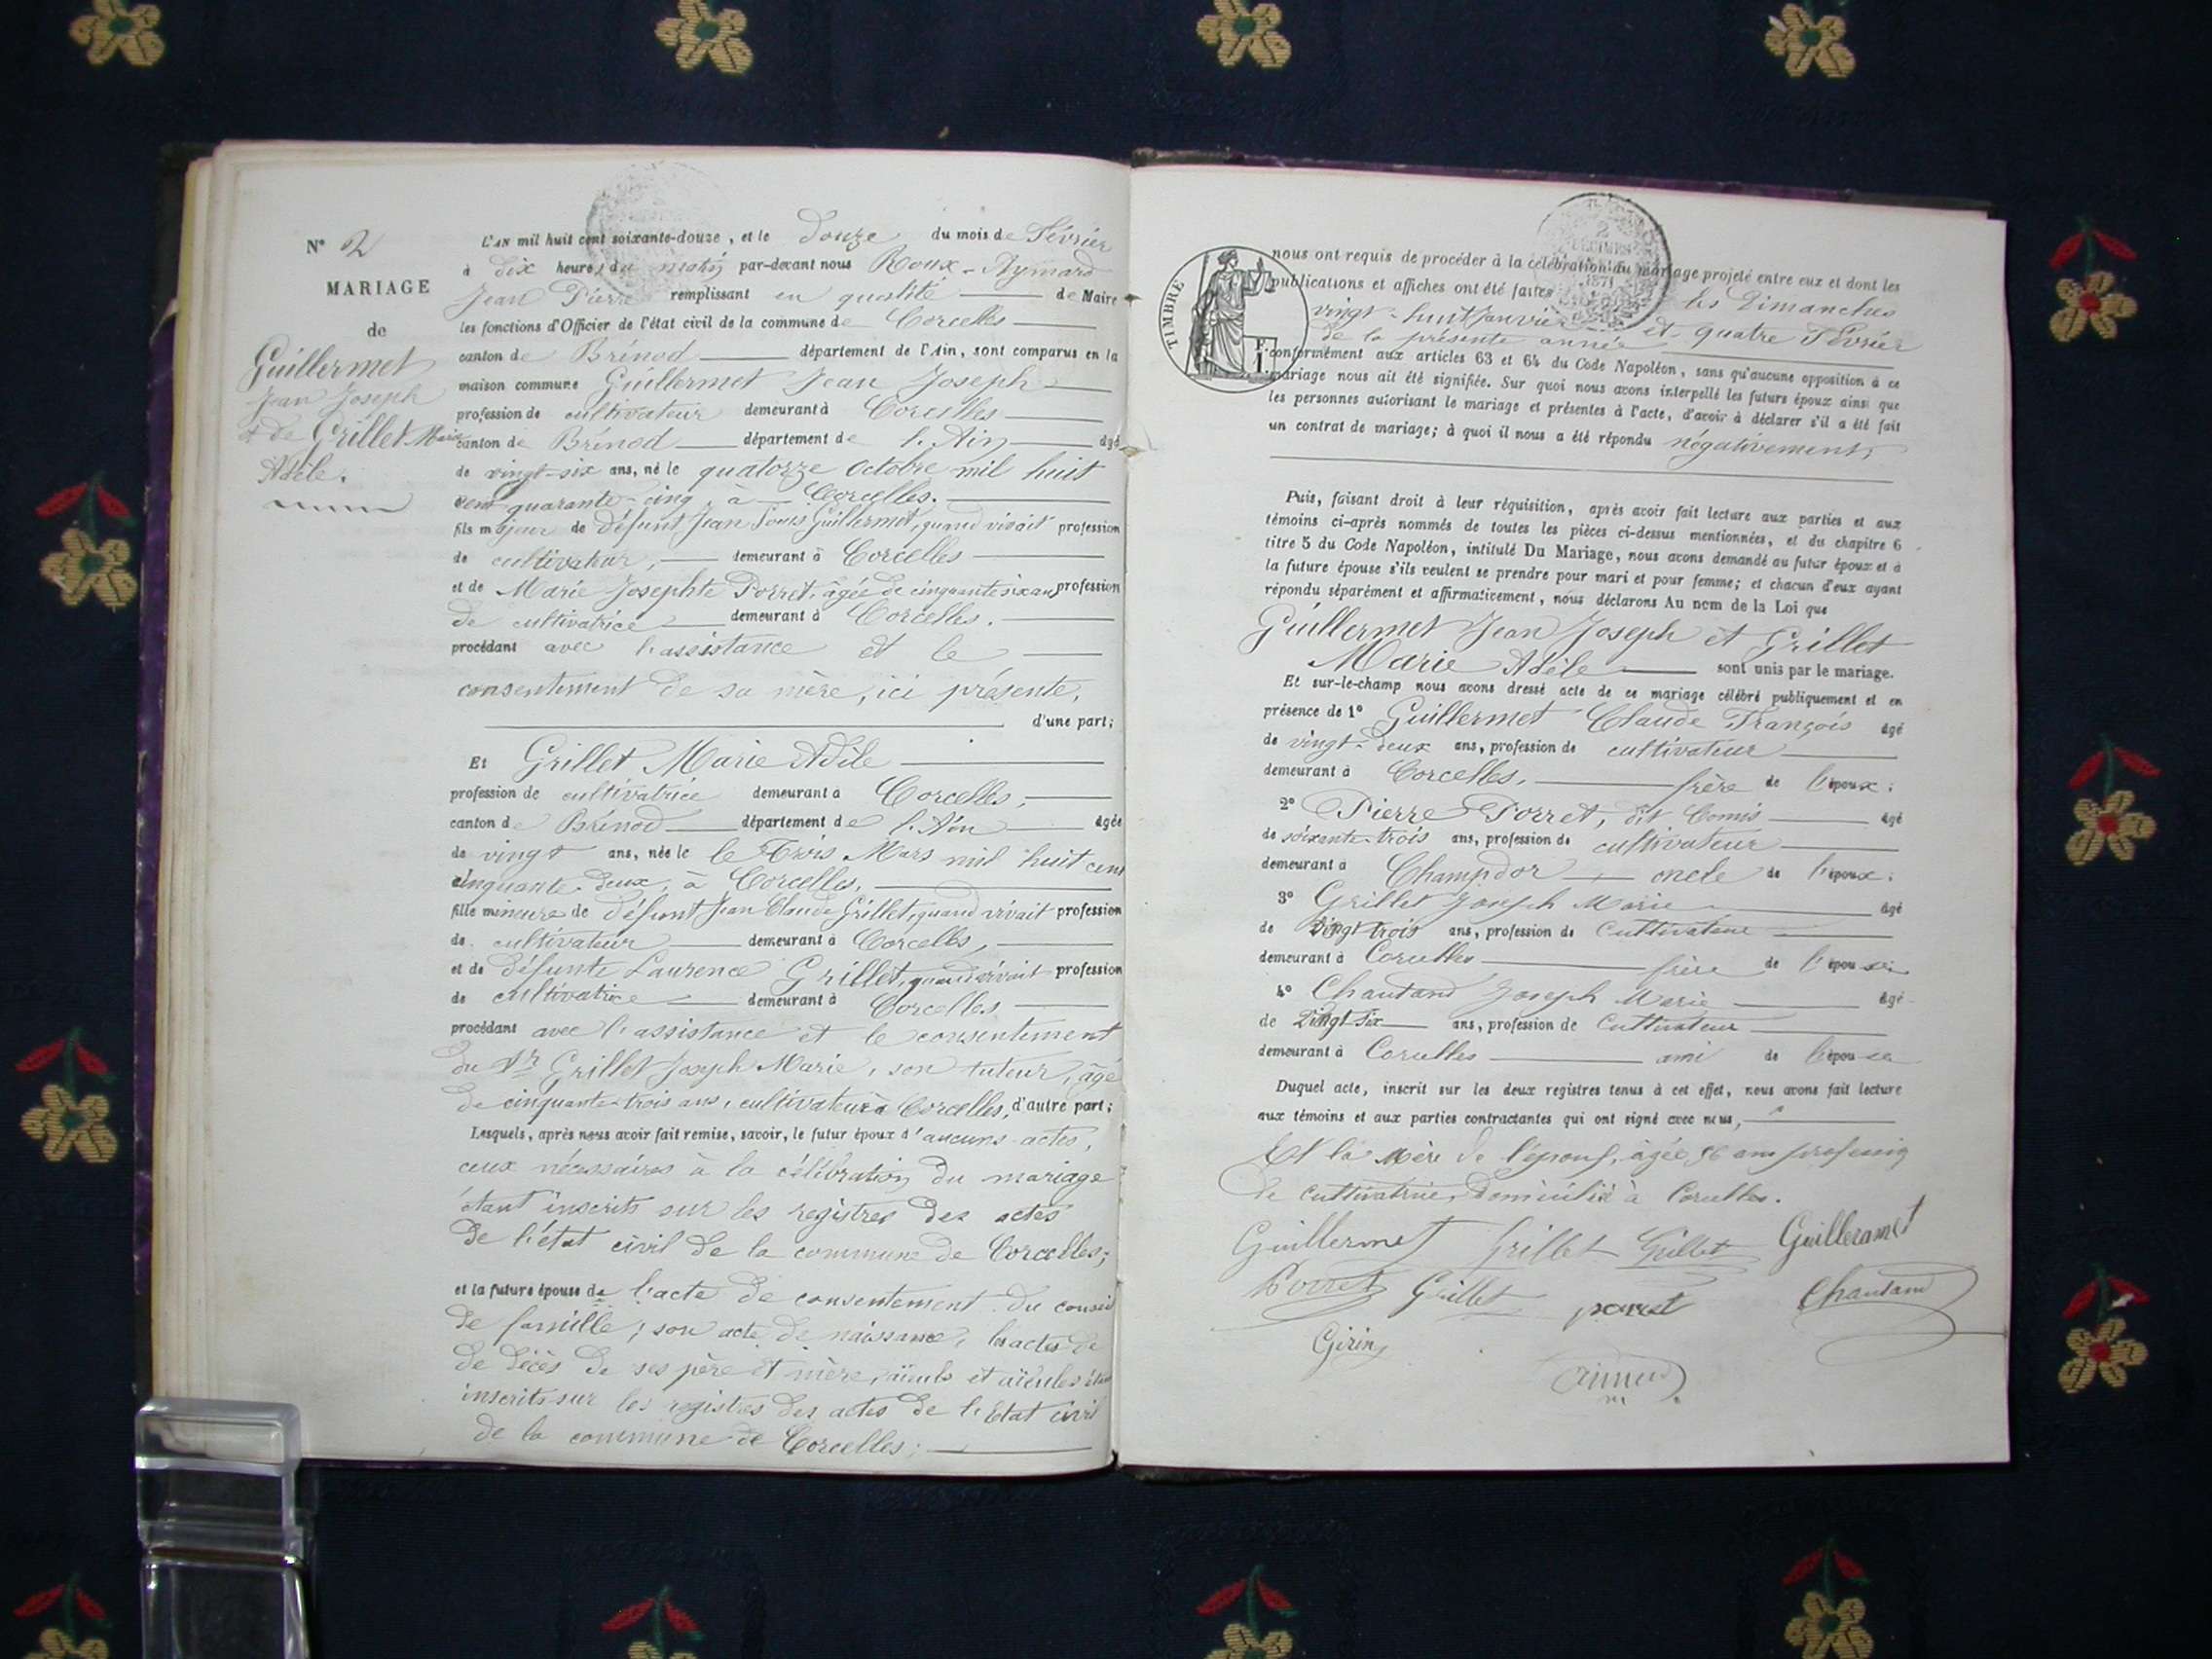 N° 2
MARIAGE
de
Guillermet
Jean Joseph
et de Grillet Marie
Adèle.
L'AN mil huit cent soixante-douze, et le douze du mois de Février
à dix heures du matin par-devant nous Roux-Aymard
Jean Pierre remplissant en qualité de Maire
les fonctions d'Officier de l'état civil de la commune de Corcelles
canton de Brénod département de l'Ain, sont comparus en la
maison commune Guillermet Jean Joseph
profession de cultivateur demeurant à Corcelles
canton de Brénod département de l'Ain âgé
de vingt-six ans, né le quatorze Octobre mil huit
cent quarante-cinq, à Corcelles.
fils majeur de défunt Jean Louis Guillermet, quand vivait profession
de cultivateur, demeurant à Corcelles
et de Marie Josephte Porret, âgée de cinquante six ans profession
de cultivatrice demeurant à Corcelles.
procédant avec l'assistance et le
consentement de sa mère, ici présente,
d'une part;
Et Grillet Marie Adèle
profession de cultivatrice demeurant à Corcelles,
canton de Brénod département de l'Ain âgée
de vingt ans, née le le Trois Mars mil huit cent
cinquante-deux, à Corcelles,
fille mineure de défunt Jean Claude Grillet, quand vivait profession
de cultivateur demeurant à Corcelles,
et de défunte Laurence Grillet, quand vivait profession
de cultivatrice demeurant à Corcelles
procédant avec l'assistance et le consentement
du Sr Grillet Joseph Marie, son tuteur, âgé
de cinquante-trois ans, cultivateur à Corcelles, d'autre part;
Lesquels, après nous avoir fait remise, savoir, le futur époux d'aucuns actes,
ceux nécessaires à la célébration du mariage
étant inscrits sur les registres des actes
de l'état civil de la commune de Corcelles;
et la future épouse de l'acte de consentement du conseil
de famille; son acte de naissance, les actes de
de décès de ses père et mère, aïeuls et aïeules étant
inscrits sur les registres des actes de l'Etat civil
de la commune de Corcelles;
TIMBRE
2
DÉCIMES
1871
nous ont requis de procéder à la célébration du mariage projeté entre eux et dont les
publications et affiches ont été faites les Dimanches
vingt-huit Janvier et quatre Février
de la présente année
conformément aux articles 63 et 64 du Code Napoléon, sans qu'aucune opposition à ce
mariage nous ait été signifiée. Sur quoi nous avons interpellé les futurs époux ainsi que
les personnes autorisant le mariage et présentes à l'acte, d'avoir à déclarer s'il a été fait
un contrat de mariage; à quoi il nous a été répondu négativement,
Puis, faisant droit à leur réquisition, après avoir fait lecture aux parties et aux
témoins ci-après nommés de toutes les pièces ci-dessus mentionnées, et du chapitre 6
titre 5 du Code Napoléon, intitulé Du Mariage, nous avons demandé au futur époux et à
la future épouse s'ils veulent se prendre pour mari et pour femme; et chacun d'eux ayant
répondu séparément et affirmativement, nous déclarons Au nom de la Loi que
Guillermet Jean Joseph et Grillet
Marie Adèle sont unis par le mariage.
Et sur-le-champ nous avons dressé acte de ce mariage célébré publiquement et en
présence de 1° Guillermet Claude François âgé
de vingt-deux ans, profession de cultivateur
demeurant à Corcelles, frère de l'époux;
2° Pierre Porret, dit Comis âgé
de soixante-trois ans, profession de cultivateur
demeurant à Champdor oncle de l'époux;
3° Grillet Joseph Marie âgé
de Vingt trois ans, profession de Cultivateur
demeurant à Corcelles frère de l'épouse
4° Chautand Joseph Marie âgé
de Vingt Six ans, profession de Cultivateur
demeurant à Corcelles ami de l'épouse
Duquel acte, inscrit sur les deux registres tenus à cet effet, nous avons fait lecture
aux témoins et aux parties contractantes qui ont signé avec nous,
Et la Mère de l'époux, âgée 56 ans profession
de Cultivatrice, domiciliée à Corcelles.
Guillermet Grillet Grillet Guilleramet
Porret Grillet porret Chautand
Girin